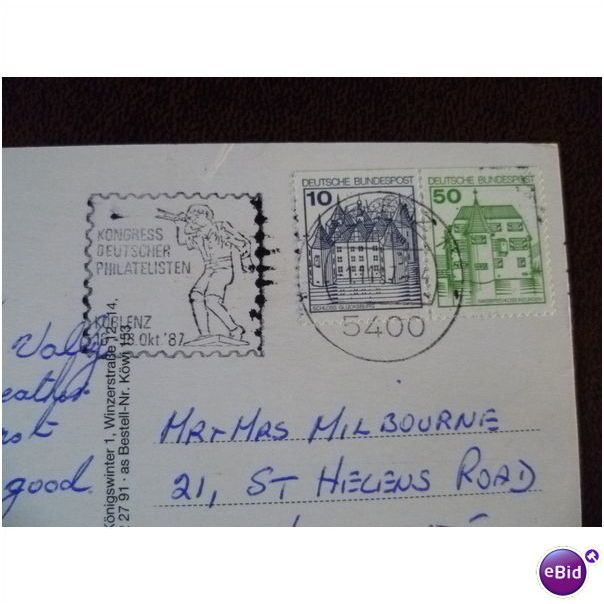 KONGRESS
DEUTSCHER
PHILATELISTEN
KOBLENZ
Okt. '87
10
DEUTSCHE BUNDESPOST
SCHLOSS GLÜCKSBURG
50
DEUTSCHE BUNDESPOST
WASSERSCHLOSS INZLINGEN
5400
Königswinter 1, Winzerstraße 12-14,
27 91 · as Bestell-Nr. Köwi 153
good
MR+MRS MILBOURNE
21, ST HELENS ROAD
eBid